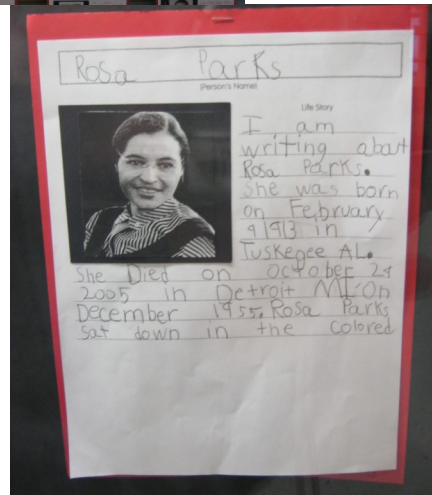 Rosa Parks
(Person's Name)
Life Story
I am
writing about
Rosa Parks.
She was born
on February
4 1913 in
Tuskegee AL.
She Died on October 24
2005 in Detroit MI. On
December 1955. Rosa Parks
sat down in the colored